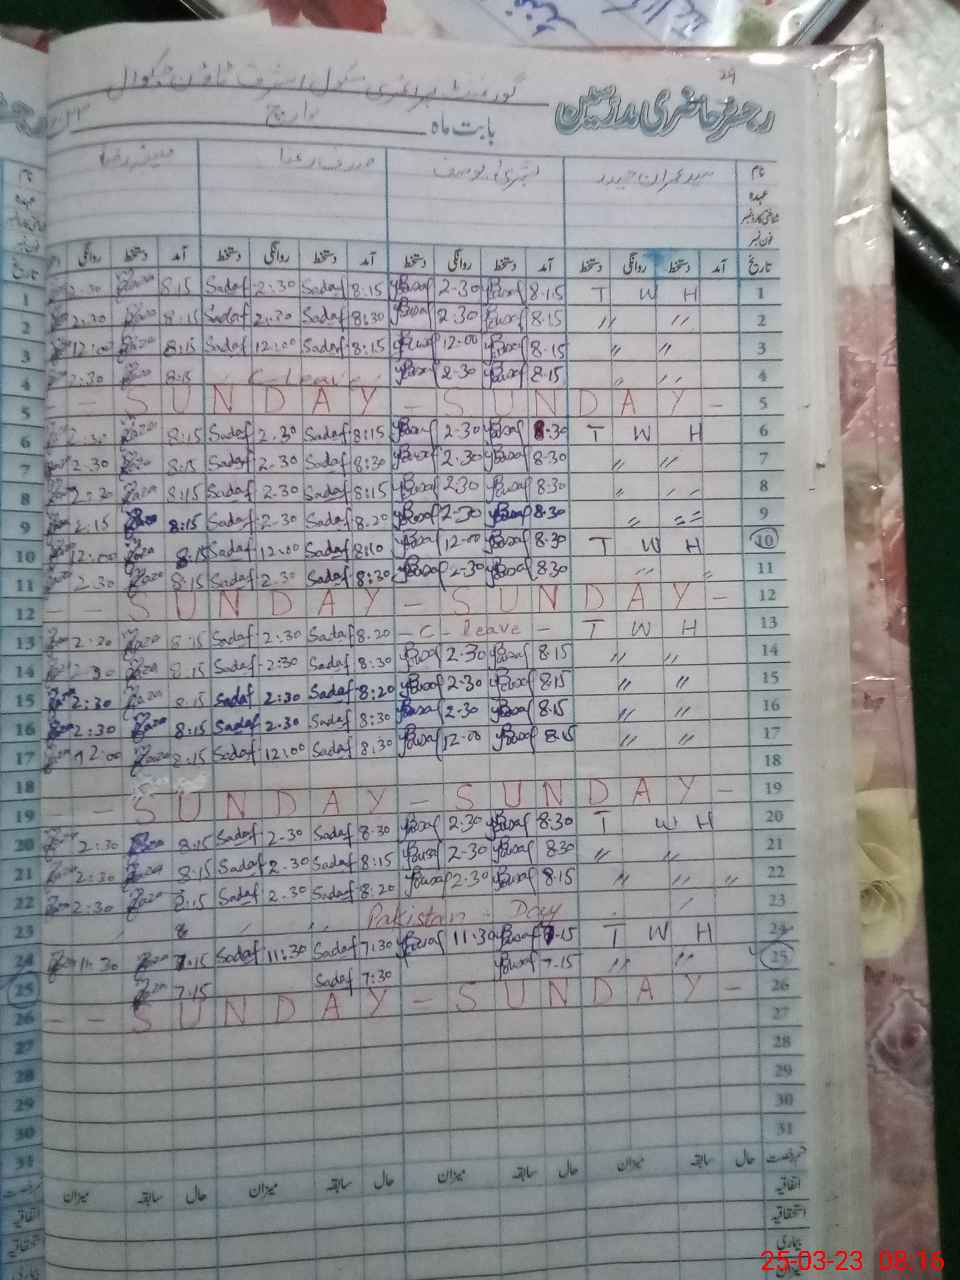 29
رجسٹر حاضری مدرسین
گورنمنٹ پرائمری سکول اشرف ٹاؤن چکوال
بابت ماہ مارچ
نام سید عمران حیدر بشریٰ یوسف صدف رضا
عہدہ
شناختی کارڈ نمبر
فون نمبر
تاریخ آمد دستخط روانگی دستخط آمد دستخط روانگی دستخط آمد دستخط روانگی دستخط آمد دستخط روانگی
1 2:30 8:15 Sadaf 2:30 Sadaf 8:15 Yusaf 2-30 Yusaf 8-15 T W H 1
2 2:30 8:15 Sadaf 2:30 Sadaf 8:30 Yusaf 2.30 Yusaf 8.15 〃 〃 2
3 12:00 8:15 Sadaf 12:00 Sadaf 8:15 Yusaf 12-00 Yusaf 8-15 〃 〃 3
4 2:30 8:15 C-leave Yusaf 2-30 Yusaf 8-15 〃 〃 4
5 - - S U N D A Y - S U N D A Y - 5
6 2:30 8:15 Sadaf 2.30 Sadaf 8:15 Yusaf 2-30 Yusaf 8.30 T W H 6
7 2.30 8:15 Sadaf 2.30 Sadaf 8:30 Yusaf 2.30 Yusaf 8-30 〃 〃 7
8 2:30 8:15 Sadaf 2.30 Sadaf 8:15 Yusaf 2-30 Yusaf 8.30 〃 〃 8
9 2:15 8:15 Sadaf 2.30 Sadaf 8.20 Yusaf 2-30 Yusaf 8-30 〃 〃 9
10 12:00 8:15 Sadaf 12:00 Sadaf 8:10 Yusaf 12-00 Yusaf 8-30 T W H 10
11 2:30 8:15 Sadaf 2.30 Sadaf 8:30 Yusaf 2-30 Yusaf 8.30 〃 〃 11
12 - - S U N D A Y - S U N D A Y - 12
13 2:30 8:15 Sadaf 2:30 Sadaf 8.20 - C - leave - T W H 13
14 2:30 8:15 Sadaf 2:30 Sadaf 8:30 Yusaf 2.30 Yusaf 8.15 〃 〃 14
15 2:30 8:15 Sadaf 2:30 Sadaf 8:20 Yusaf 2-30 Yusaf 8.15 〃 〃 15
16 2:30 8:15 Sadaf 2.30 Sadaf 8:30 Yusaf 2-30 Yusaf 8.15 〃 〃 16
17 12:00 8:15 Sadaf 12:00 Sadaf 8:30 Yusaf 12-00 Yusaf 8-15 〃 〃 17
18 18
19 - - S U N D A Y - S U N D A Y - 19
20 2:30 8:15 Sadaf 2-30 Sadaf 8.30 Yusaf 2.30 Yusaf 8.30 T W H 20
21 2:30 8:15 Sadaf 2.30 Sadaf 8:15 Yusaf 2-30 Yusaf 830 〃 〃 21
22 2:30 8:15 Sadaf 2.30 Sadaf 8:20 Yusaf 2.30 Yusaf 8.15 〃 〃 〃 22
23 Pakistan - Day 23
24 11:30 7:15 Sadaf 11:30 Sadaf 7:30 Yusaf 11.30 Yusaf 7-15 T W H 24
25 7:15 Sadaf 7:30 Yusaf 7-15 〃 〃 25
26 - - S U N D A Y - S U N D A Y - 26
27 27
28 28
29 29
30 30
31 31
حال سابقہ میزان حال سابقہ میزان حال سابقہ میزان
اتفاقیہ
استحقاقیہ
بیماری
میزان
25-03-23 08:16